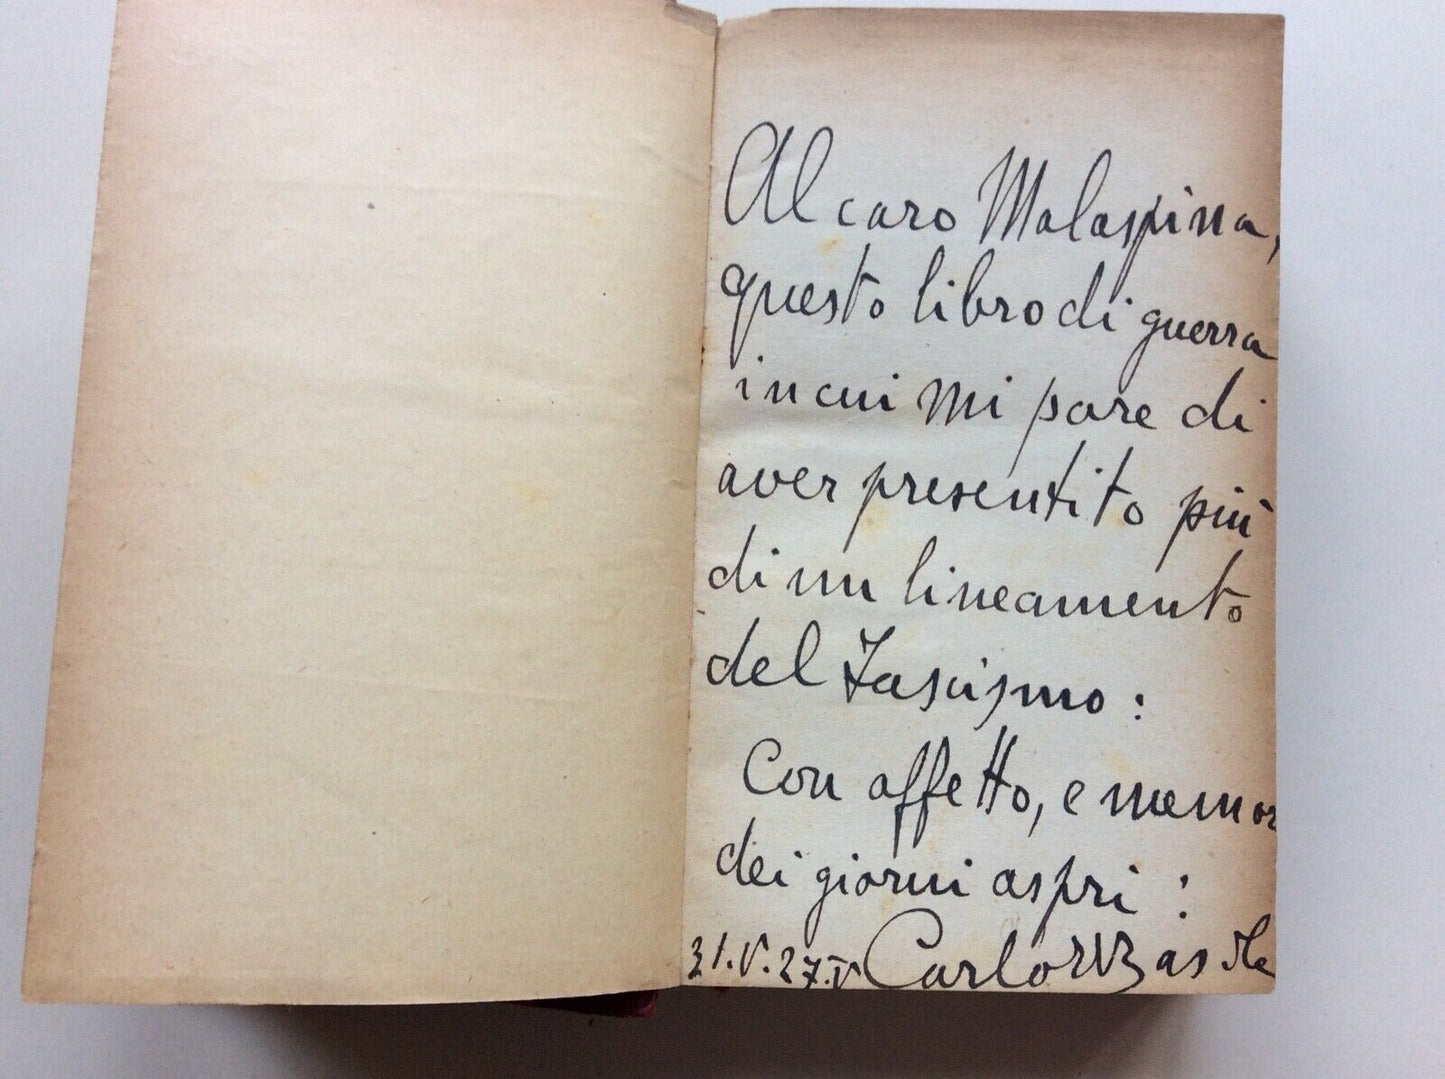 Al caro Malaspina,
questo libro di guerra
in cui mi pare di
aver presentito più
di un lineamento
del Fascismo:
Con affetto, e memor
dei giorni aspri!
31.V.27.V Carlo Basile